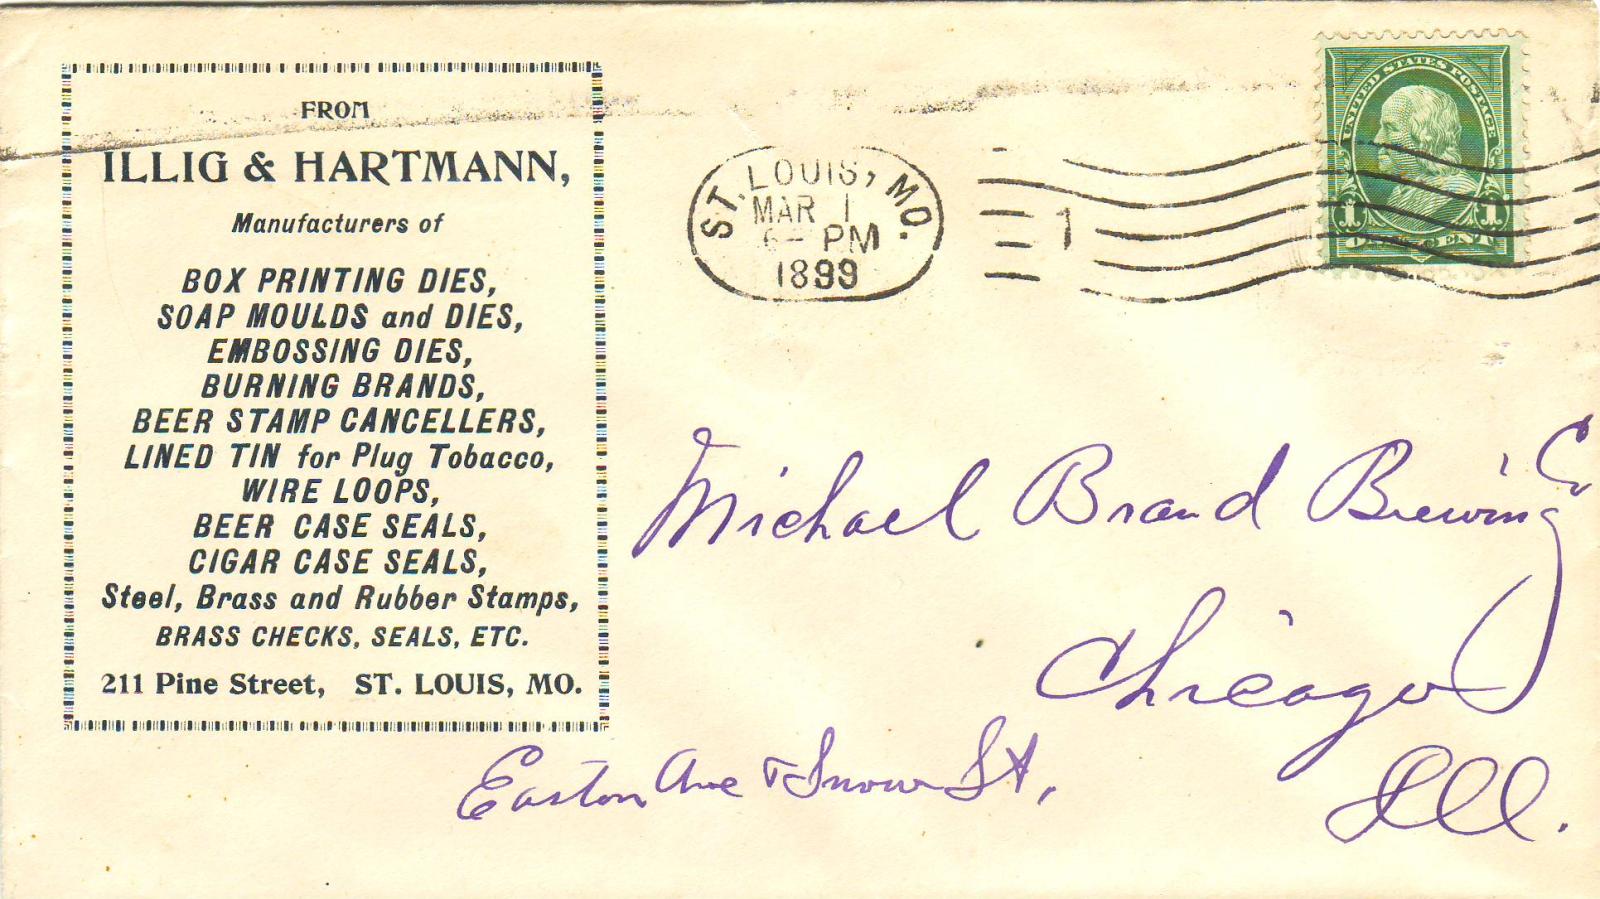 FROM
ILLIG & HARTMANN,
Manufacturers of
BOX PRINTING DIES,
SOAP MOULDS and DIES,
EMBOSSING DIES,
BURNING BRANDS,
BEER STAMP CANCELLERS,
LINED TIN for Plug Tobacco,
WIRE LOOPS,
BEER CASE SEALS,
CIGAR CASE SEALS,
Steel, Brass and Rubber Stamps,
BRASS CHECKS, SEALS, ETC.
211 Pine Street, ST. LOUIS, MO.
ST. LOUIS, MO.
MAR 1
6- PM
1899
1
UNITED STATES POSTAGE
1 1
ONE CENT
Michael Brand Brewing Co
Chicago
Ill.
Easton Ave & Snow St,